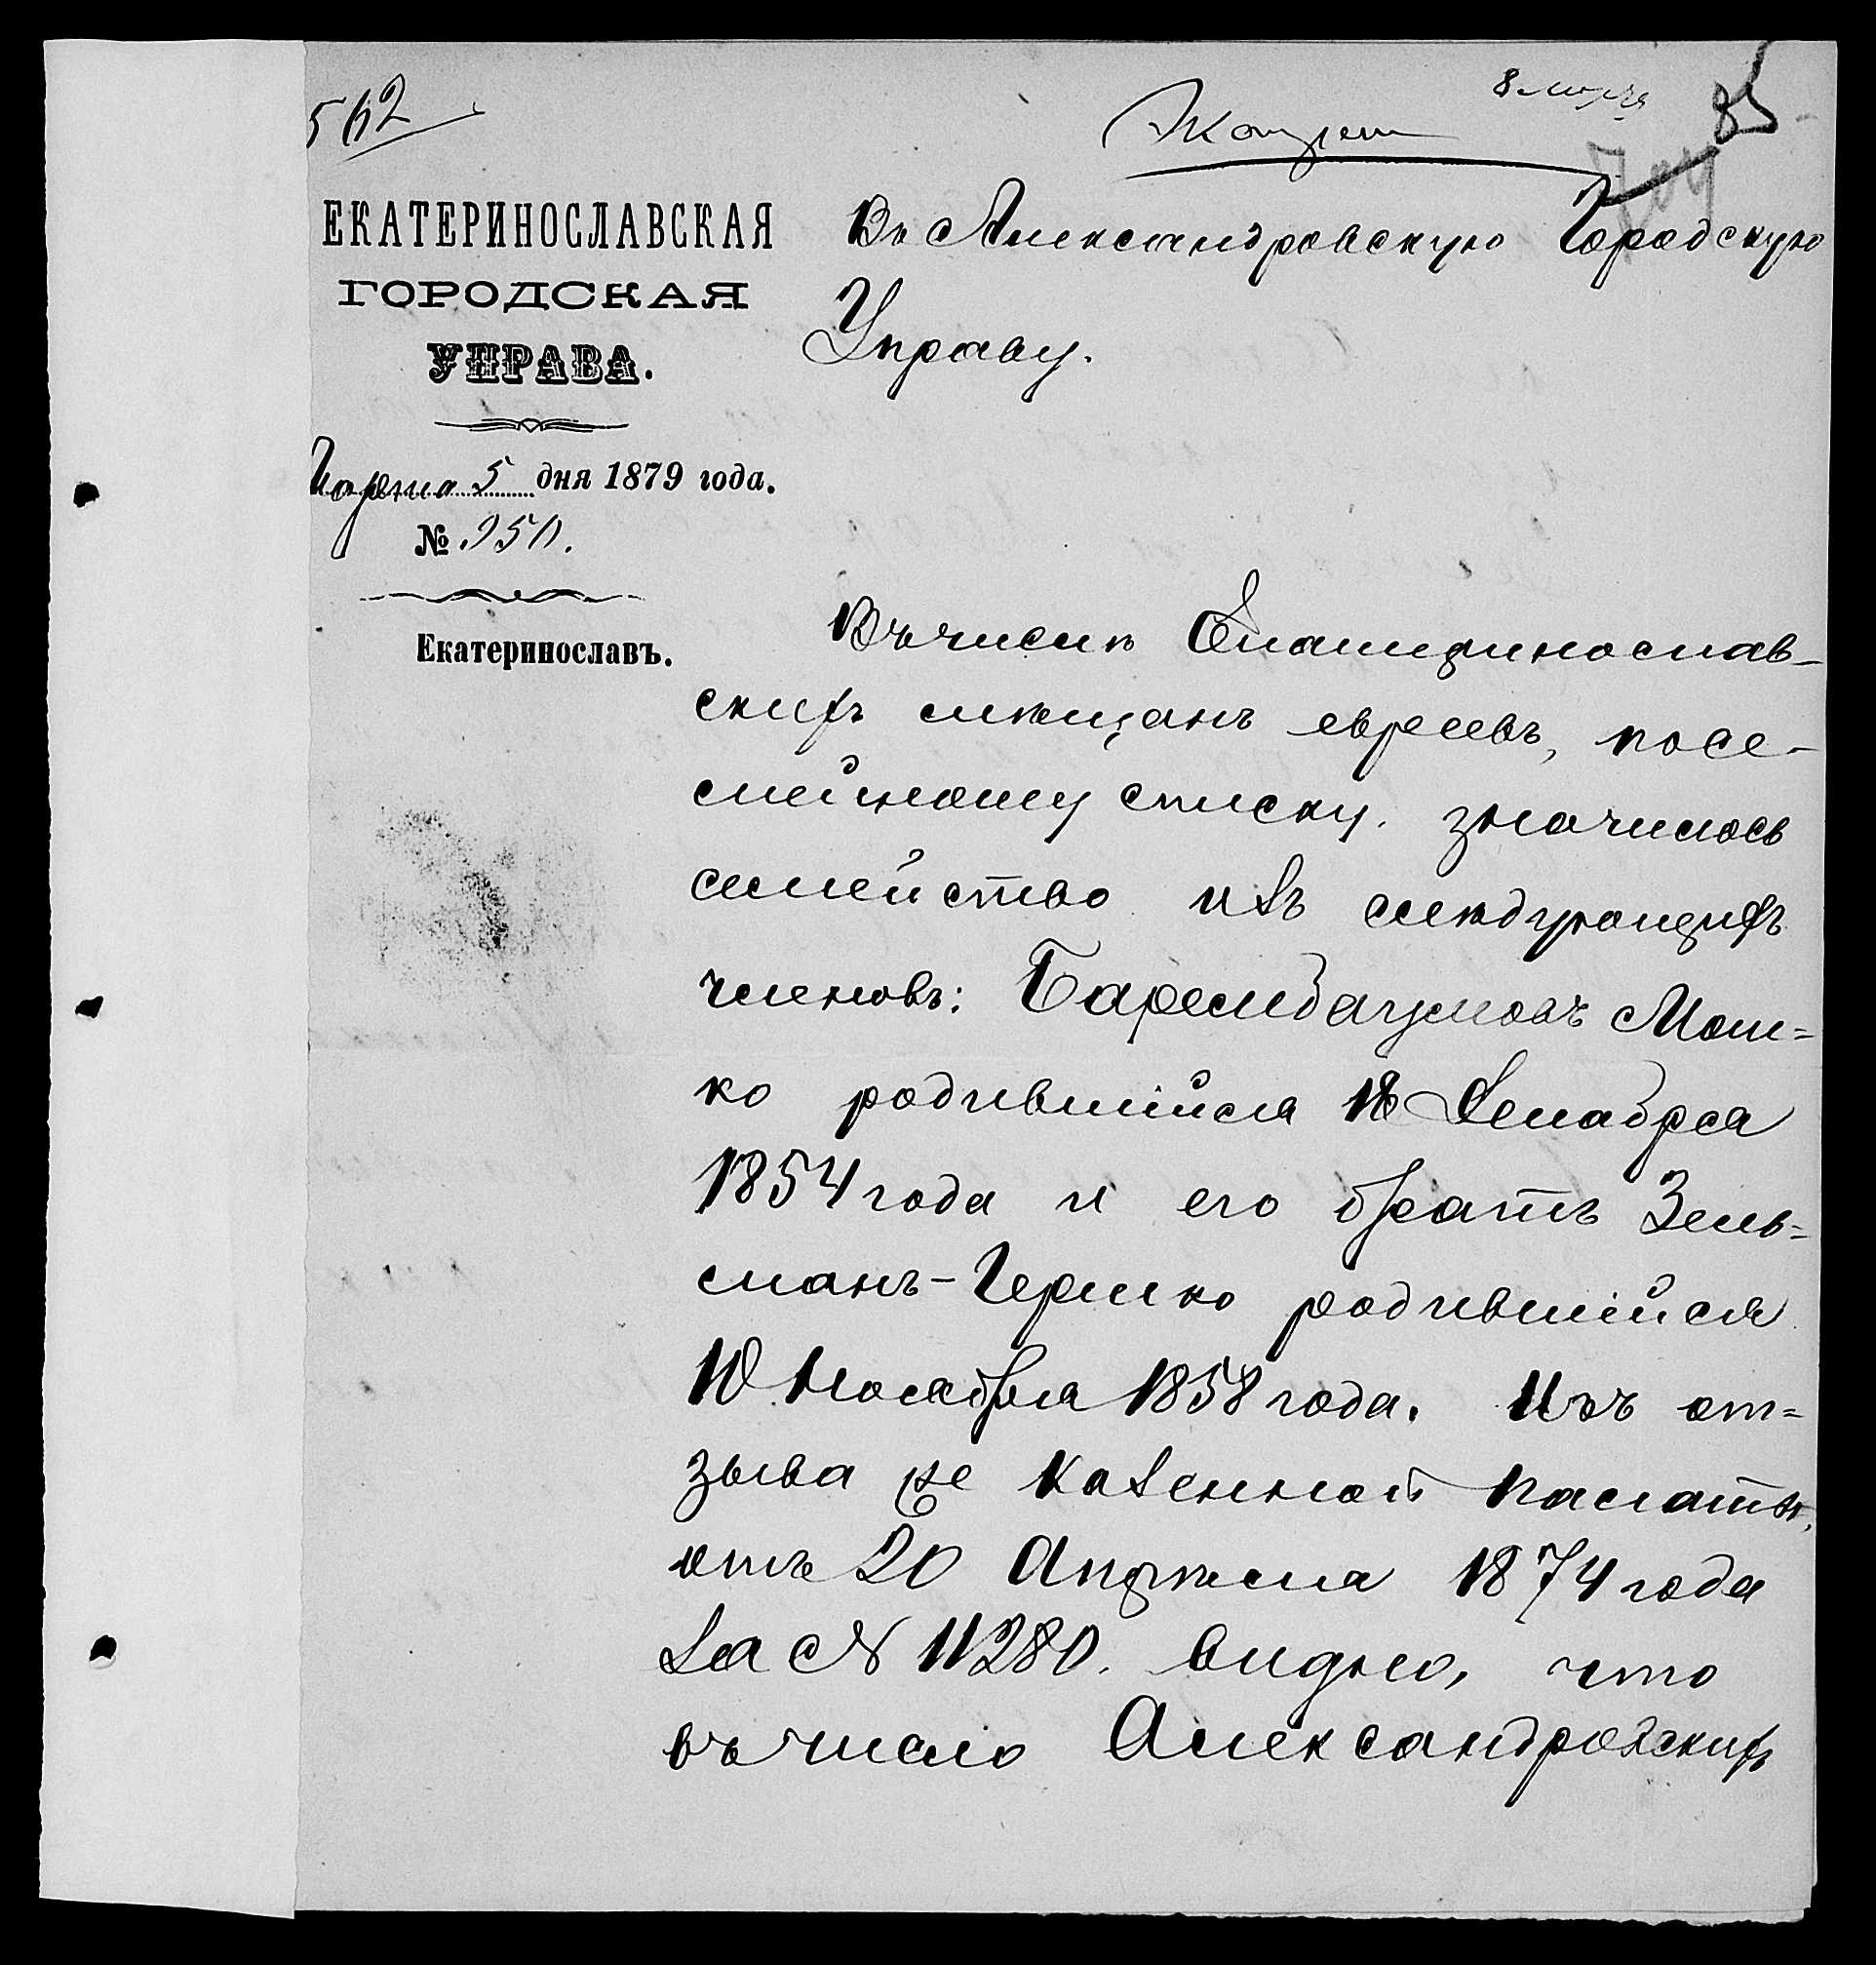 562
8 марта
85
704
ЕКАТЕРИНОСЛАВСКАЯ
ГОРОДСКАЯ
УПРАВА.
Марта 5 дня 1879 года.
№ 950.
Екатеринославъ.
Въ Александровскую Городскую
Управу.
Въ числѣ Екатеринослав-
скихъ мѣщанъ евреевъ, посе-
мейному списку. значилось
семейство изъ слѣдующихъ
членовъ: Барембаумовъ Мош-
ко родившійся 18 Декабря
1854 года и его братъ Зель-
манъ-Гершко родившійся
10 Ноября 1858 года. Изъ от-
зыва же Казенной Палаты,
отъ 20 Апрѣля 1874 года
за № 11280. видно, что
въ число Александровскихъ